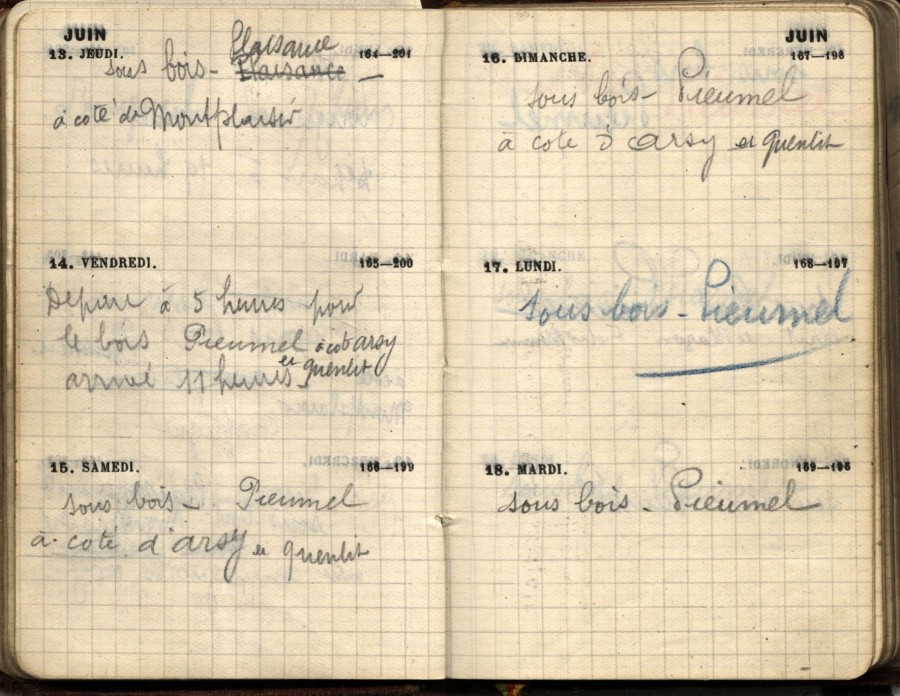 JUIN
13. JEUDI. 164—201
Plaisance
sous bois - Plaisance —
à coté de Montplaisir
14. VENDREDI. 165—200
Depart à 5 heures pour
le bois Pieumel à cot arsy
et quentit
arrivé 11 heures
15. SAMEDI. 166—199
sous bois - Pieumel
à coté d'arsy et quentit
JUIN
16. DIMANCHE. 167—198
sous bois - Pieumel
à cote d arsy et quentit
17. LUNDI. 168—197
sous bois - Pieumel
18. MARDI. 169—196
sous bois - Pieumel